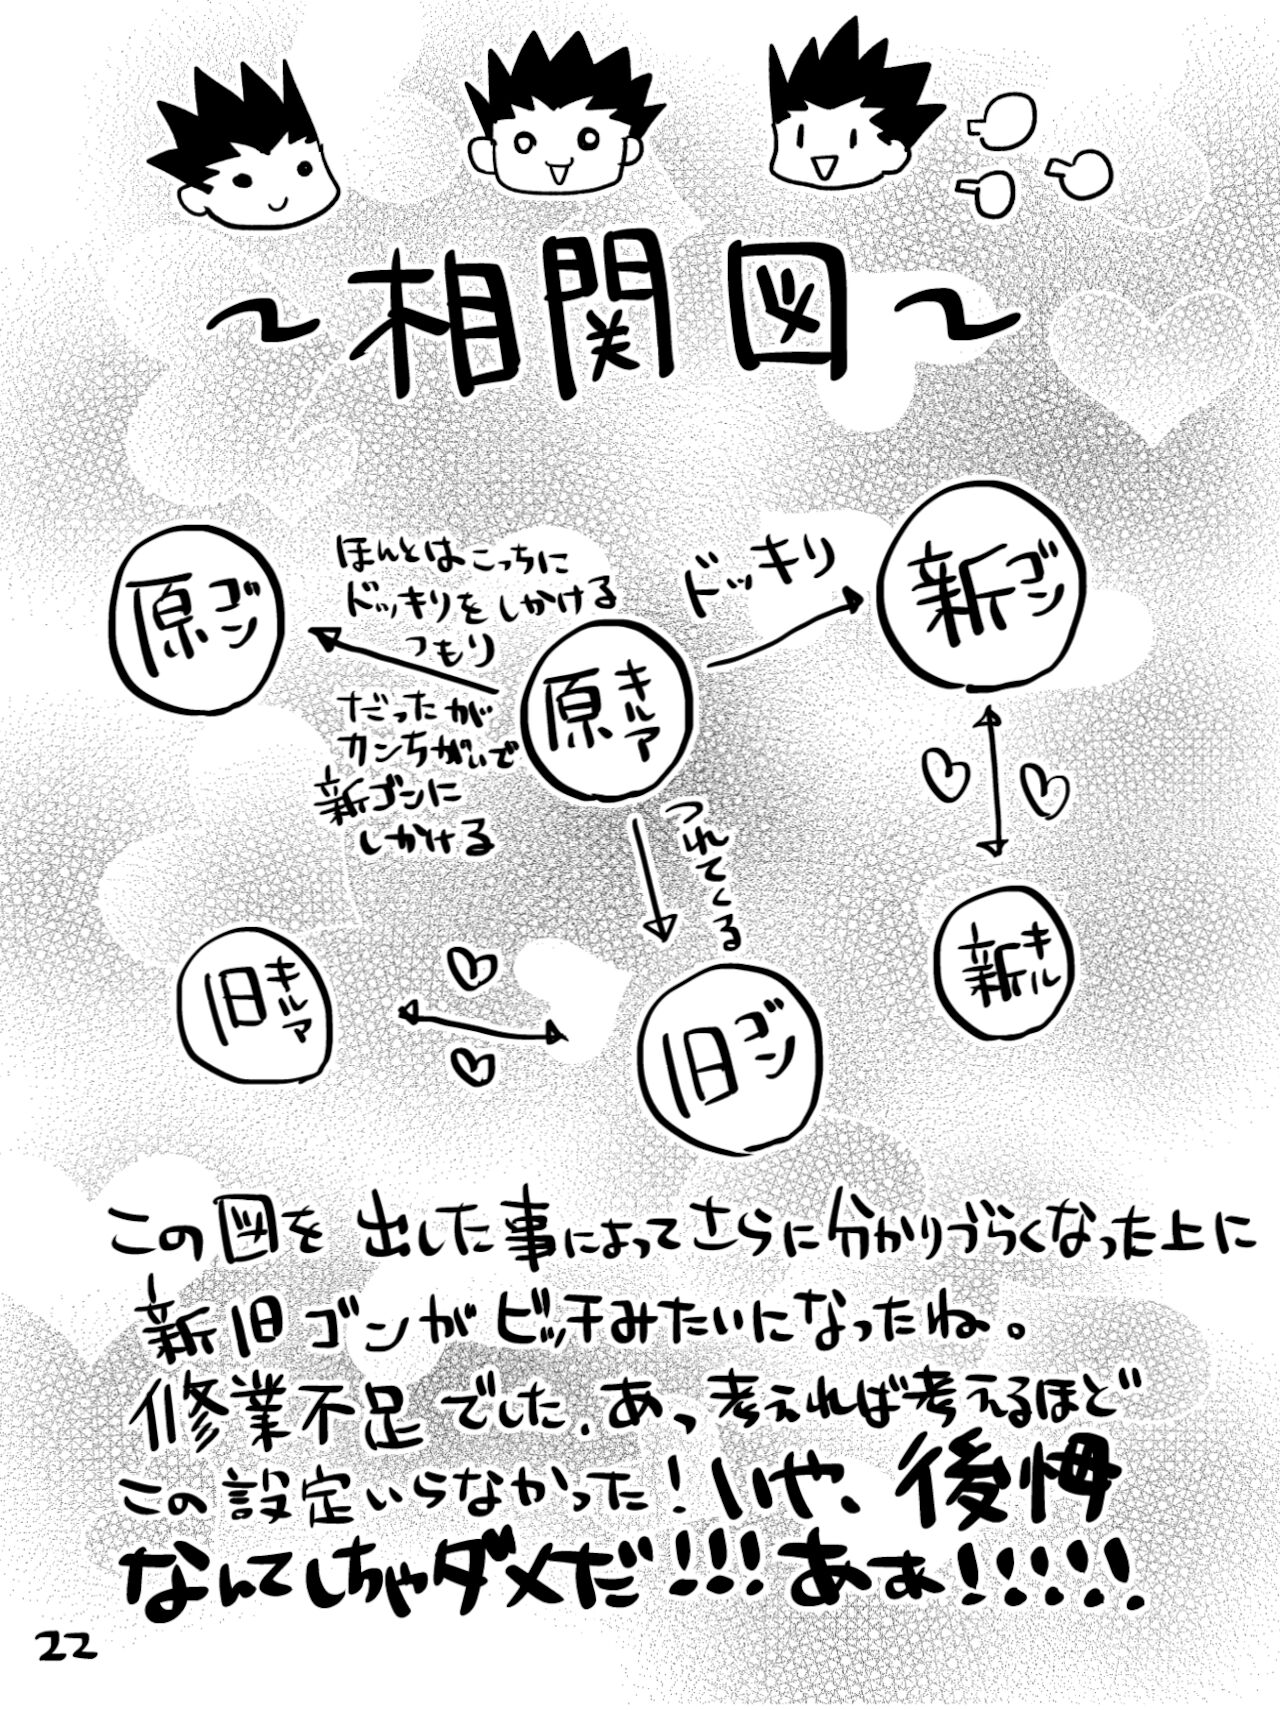 ～相関図～
原ゴン
ほんとはこっちに
ドッキリをしかける
つもり
だったが
カンちがいで
新ゴンに
しかける
原キルア
ドッキリ
新ゴン
つれてくる
新キル
旧キルア
旧ゴン
この図を出した事によってさらに分かりづらくなった上に
新旧ゴンがビッチみたいになったね。
修業不足でした、あっ考えれば考えるほど
この設定いらなかった!いや、後悔
なんてしちゃダメだ!!!あぁ!!!!!
22